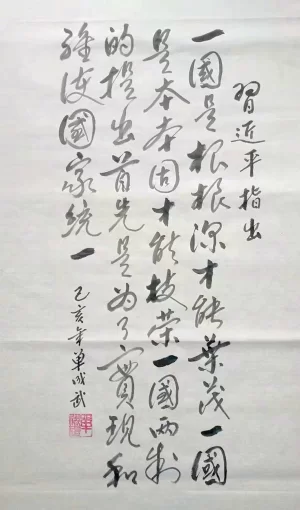 習近平指出
一國是根根深才能葉茂一國
是本本固才能枝荣一國两制
的提出首先是为了實現和
維护國家統一
己亥年單成武